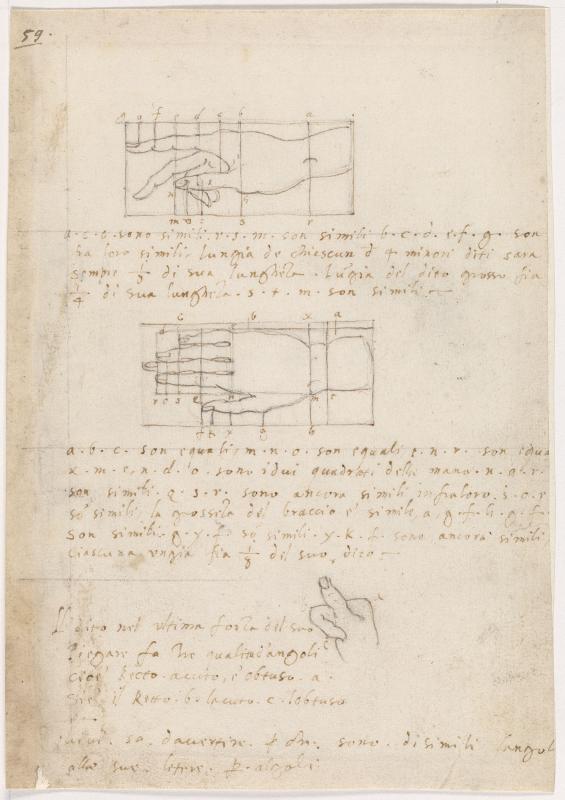 59.
g f e d c b a
m s r
a. c. e. sono simili. r. s. m. son simili b. c. d. e. f. g. son
fra loro simili, lungia de chiescun d 4 minori diti sara
sempre 1/3 di sua lungheza. lugia del dito grosso fia
1/4 di sua lungheza. s. t. m. son simili
d c b x a
r s n m
f t y g b
a. b. c. son equali, m. n. o. son equali e. n. r. son equa
x. m. e, n. d. o. sono i dui quadrati della mano. n. q. r.
son simili. q. s. r. sono ancora simili infraloro. s. o. r
so simili, la grosseza del braccio e simile, a, g. f. h. q. f.
son simili. g. y. f. so simili. y. k. f. sono ancora simili
ciascuna ungia fia 1/8 del suo dito
Il dito nel ultima forza del suo
piegare fa tre qualita angoli
cioe Recto acuto, e obtuso. a.
il Retto. b. lacuto. c. lobtuso
sa davertire sono disimili langol
alle sue letere.